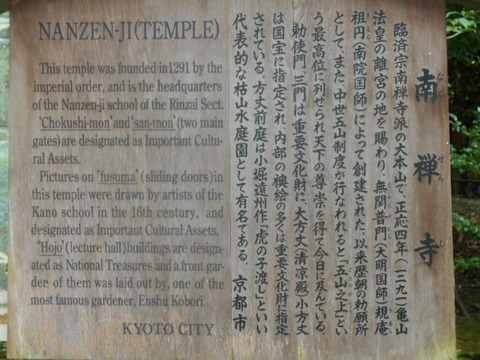 NANZEN-JI(TEMPLE)
This temple was founded in1291 by the
imperial order, and is the headquarters
of the Nanzen-ji school of the Rinzai Sect.
'Chokushi-mon'and'san-mon'(two main
gates)are designated as Important Cultu-
ral Assets.
Pictures on 'fusuma' (sliding doors)in
this temple were drawn by artists of the
Kano school in the 16th century, and
designated as Important Cultural Assets.
'Hojo'(lecture hall)buildings are design-
ated as National Treasures and a front gar-
den of them was laid out by, one of the
most famous gardener, Enshu Kobori.
KYOTO CITY
南禅寺
なんぜんじ
臨済宗南禅寺派の大本山で、正応四年(一二九一)亀山
法皇の離宮の地を賜わり、無関普門(大明国師)規庵
祖円(南院国師)によって創建された。以来歴朝の勅願所
として、また、中世五山制度が行なわれると「五山之上」とい
う最高位に列せられ天下の尊崇を得て今日に及んでいる。
勅使門、三門は重要文化財に、大方丈(清涼殿)小方丈
は国宝に指定され、内部の襖絵の多くは重要文化財に指定
されている。方丈前庭は小堀遠州作「虎の子渡し」といい
代表的な枯山水庭園として有名である。
京都市